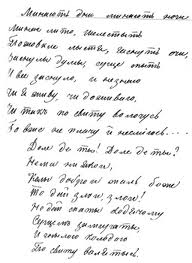 Минають дни минають ночи
Мина лито, шелестыть
Пожовкле лыстя, гаснуть очи,
Заснулы думы, серце спыть
И все заснуло, и незнаю
Чи я живу, чи доживаю,
Чи такъ по свиту волочусь
Бо вже не плачу й несміюсь...
Доле де ты! Доле де ты?
Нема ниякои,
Колы доброи жаль боже
То дай злои, злои!
Недай спаты ходячому
Серцемъ замираты,
И гнылою колодою
По свиту валятысь.